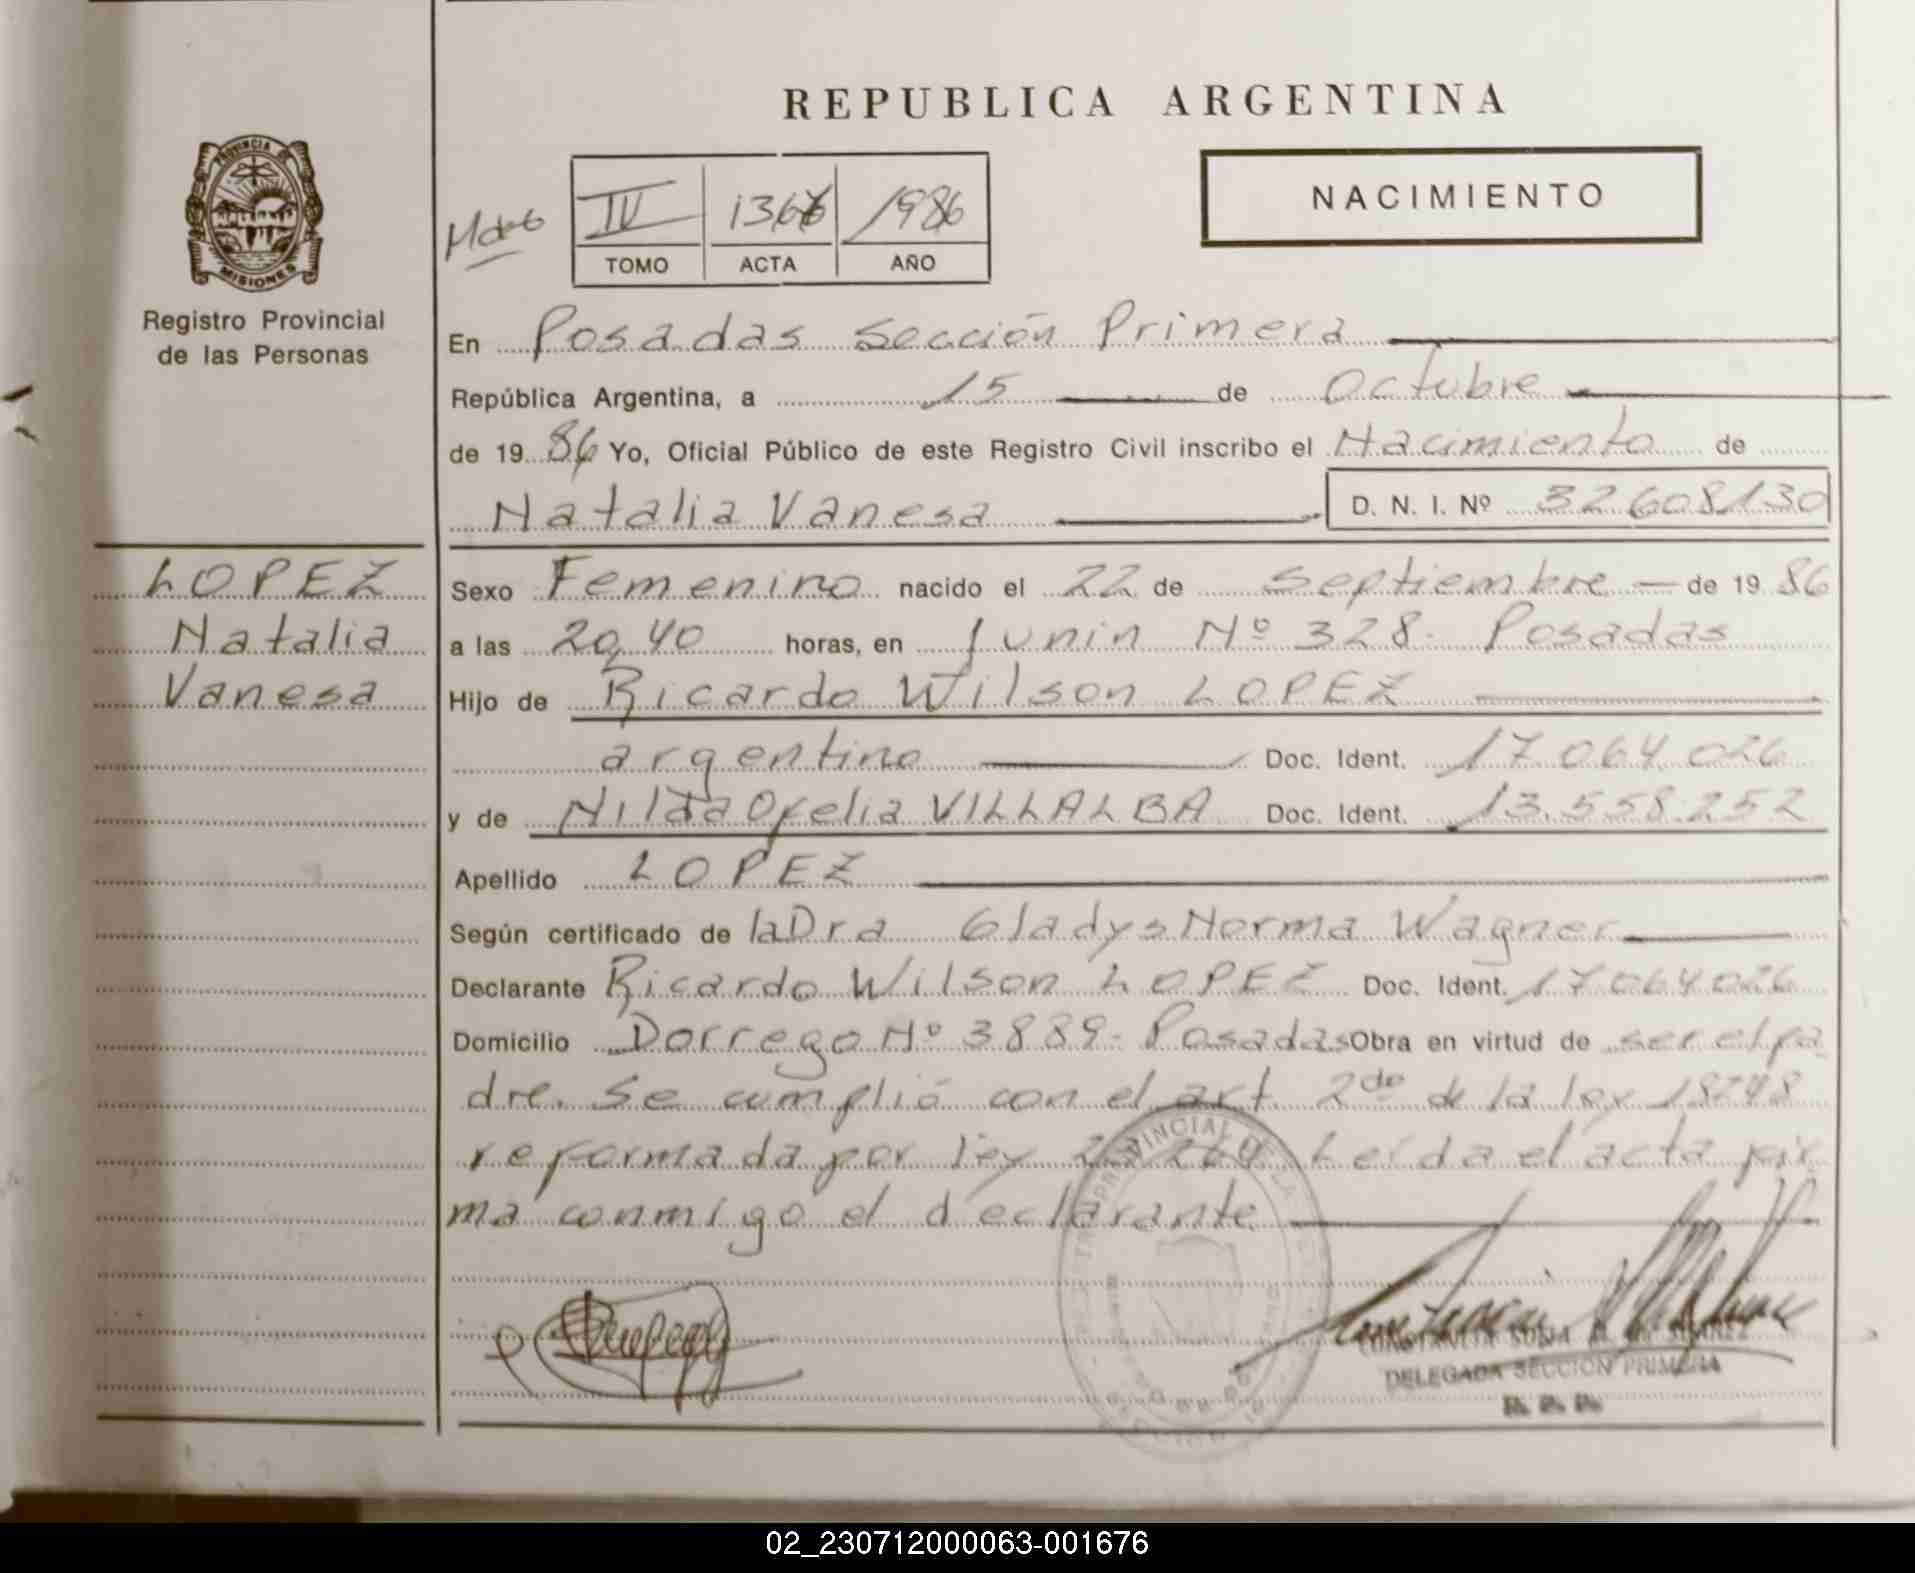 REPUBLICA ARGENTINA
NACIMIENTO
PROVINCIA DE
MISIONES
Registro Provincial
de las Personas
IV 1986
TOMO ACTA AÑO
En Posadas Sección Primera
República Argentina, a 15 de Octubre
de 1986 Yo, Oficial Público de este Registro Civil inscribo el Nacimiento de
Natalia Vanesa D. N. I. Nº 32608130
LOPEZ
Natalia
Vanesa
Sexo Femenino nacido el 22 de Septiembre de 1986
a las 20,40 horas, en Junin Nº 328. Posadas
Hijo de Ricardo Wilson LOPEZ
argentino Doc. Ident. 17.064.026
y de Nilda Ofelia VILLALBA Doc. Ident. 13.558.252
Apellido LOPEZ
Según certificado de la Dra Gladys Norma Wagner
Declarante Ricardo Wilson LOPEZ Doc. Ident. 17064026
Domicilio Dorrego Nº 3889. Posadas Obra en virtud de ser el pa
dre. Se cumplió con el art. 2do de la ley 18248
reformada por ley Leída el acta fir
ma conmigo el declarante
DELEGADA SECCION PRIMERA
02_230712000063-001676